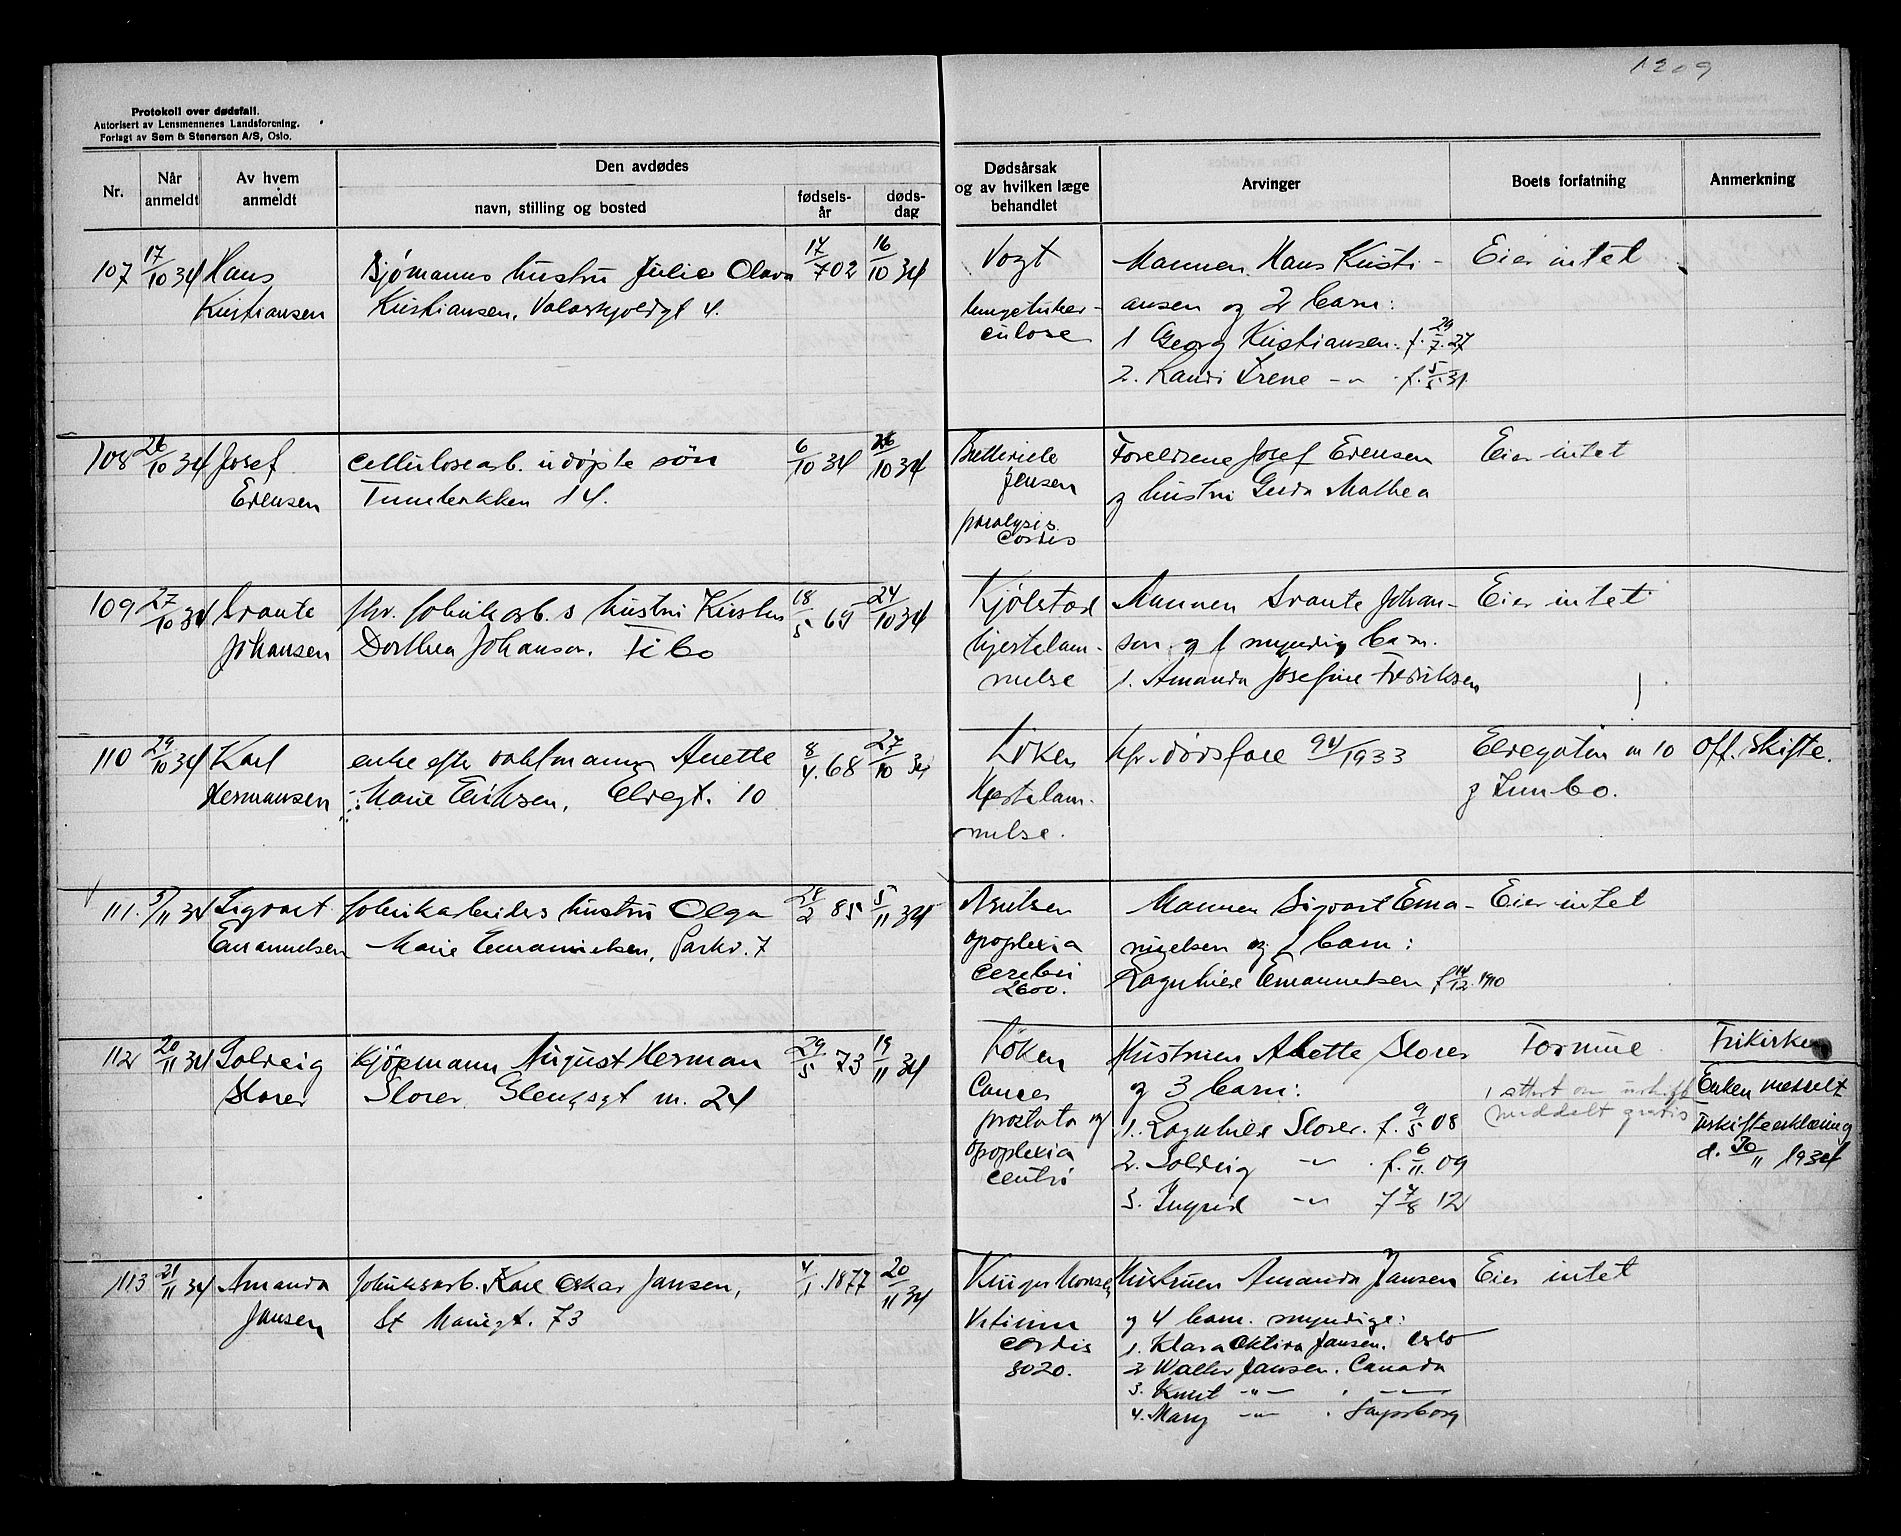 1209
Protokoll over dødsfall.
Autorisert av Lensmennenes Landsforening.
Forlagt av Sem & Stenersen A/S, Oslo.
Nr.
Når anmeldt
Av hvem anmeldt
Den avdødes
navn, stilling og bosted
fødsels-år
døds-dag
Dødsårsak og av hvilken læge behandlet
Arvinger
Boets forfatning
Anmerkning
107 17/10 34 Hans Sjømanns hustru Julie Olava 17/7 02 16/10 34 Vogt Mannen Hans Kristi- Eier intet
Kristiansen Kristiansen, Valaskjoldgt 4. lungetuber- ansen og 2 barn:
culose 1 Georg Kristiansen. f. 29/7. 27
2. Randi Irene -"- f. 5/5. 31
108 26/10 34 Josef cellulosearb. udøpte søn 6/10 34 26/10 34 Jensen Foreldrene Josef Evensen Eier intet
Evensen 14. og hustru Gerda Mathea
paralysis
cordis
109 27/10 34 Svante fhv. fabrikarb.s hustru 18/5 69 24/10 34 Kjølstad Mannen Svante Johan- Eier intet
Johansen Dorthea Johansen. Tibo hjertelam- sen og 1 myndig barn.
melse 1. Amanda Josefine Fredriksen
110 29/10 34 Karl enke efter Anette 8/4. 68 27/10 34 Løken kfr. dødsfall 94/1933 Elvegaten nr 10 Off. skifte.
Hermansen Marie Eriksen, Elvegt. 10 Hjertelam- og Tunbo.
melse.
111. 5/11 34 Sigvart fabrikarbeiders hustru Olga 28/2 85 5/11 34 Arnelsen Mannen Sigvart Ema- Eier intet
Emanuelsen Marie Emanuelsen, Parkv. 7 apoplexia nuelsen og 1 barn:
cerebri Ragnhild Emanuelsen f 14/12. 1910
2600.
112 20/11 34 Solveig Kjøpmann August Herman 29/5 73 19/11 34 Løken Hustruen Alette Slorer Formue Frikirken
Slorer Slorer Glengsgt nr. 24 Cancer og 3 barn: 1 attest om uskift Enken meddelt
prostata og 1. Ragnhild Slorer. f. 9/5 08 meddelt gratis uskifteerklæring
apoplexia 2. Solveig -"- f. 6/11. 09 d. 20/11 1934
3. Ingrid -"- f 7/8 12
113 21/11 34 Amanda fabrikarb. Karl Oskar Jansen, 4/1. 1877 20/11 34 Hustruen Amanda Jansen Eier intet
Jansen St Mariegt. 73 Vitium og 4 barn. myndige:
cordis 1. Klara Oktiva Jansen. Oslo
8020. 2 Walter Jansen. Canada
3. Knut -"- -"-
4. Mary -"- Sarpsborg